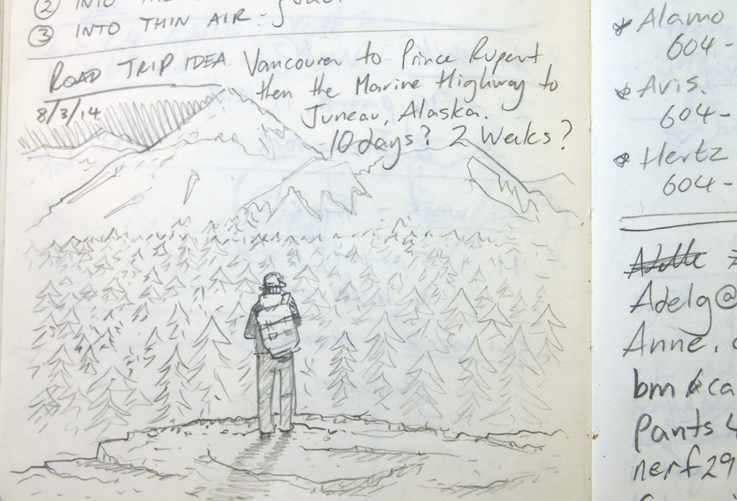 ② INTO THE
③ INTO THIN AIR -
ROAD TRIP IDEA. Vancouver to Prince Rupert
8/3/14
then the Marine Highway to
Juneau, Alaska.
10 days? 2 Weeks?
Alamo
604-
Avis.
604-
Hertz
604-
Adelg@
Anne.
bm
Pants 4
nerf29